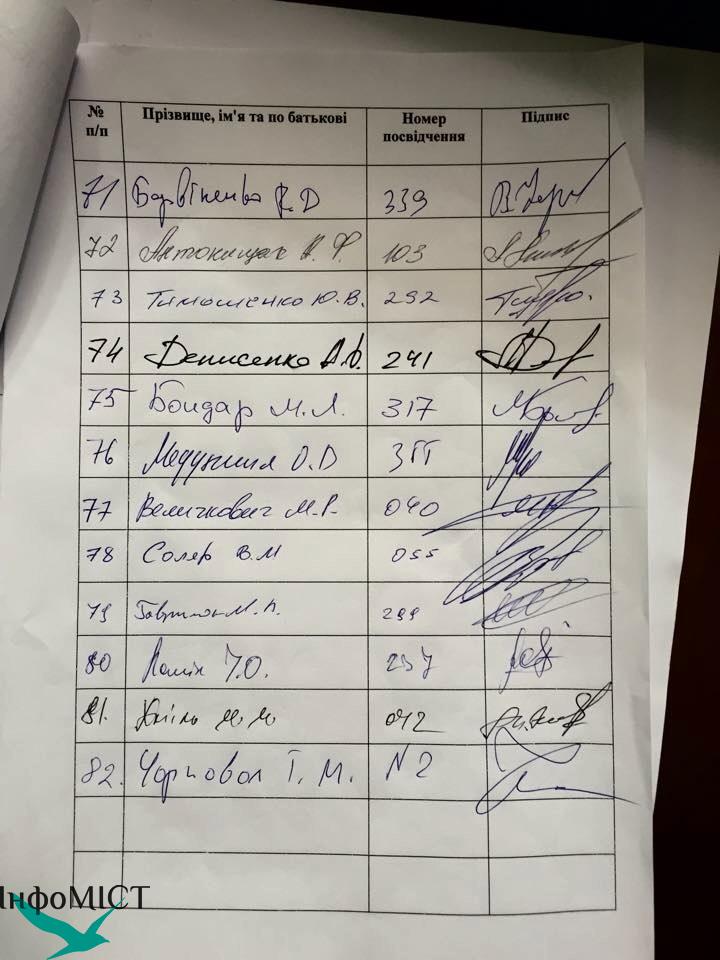 № п/п Прізвище, ім'я та по батькові Номер посвідчення Підпис
71 Барвіненко В.Д 339
72 Антонищак А.Ф. 103
73 Тимошенко Ю.В. 292
74 Денисенко А.С. 241
75 Бондар М.Л. 317
76 Медуниця О.В 355
77 Величкович М.Р. 040
78 Соляр В.М 055
79 М.П. 299
80 Ю.О. 237
81. М.М 042
82. Чорновол Т.М. N 2
ІнфоМІСТ